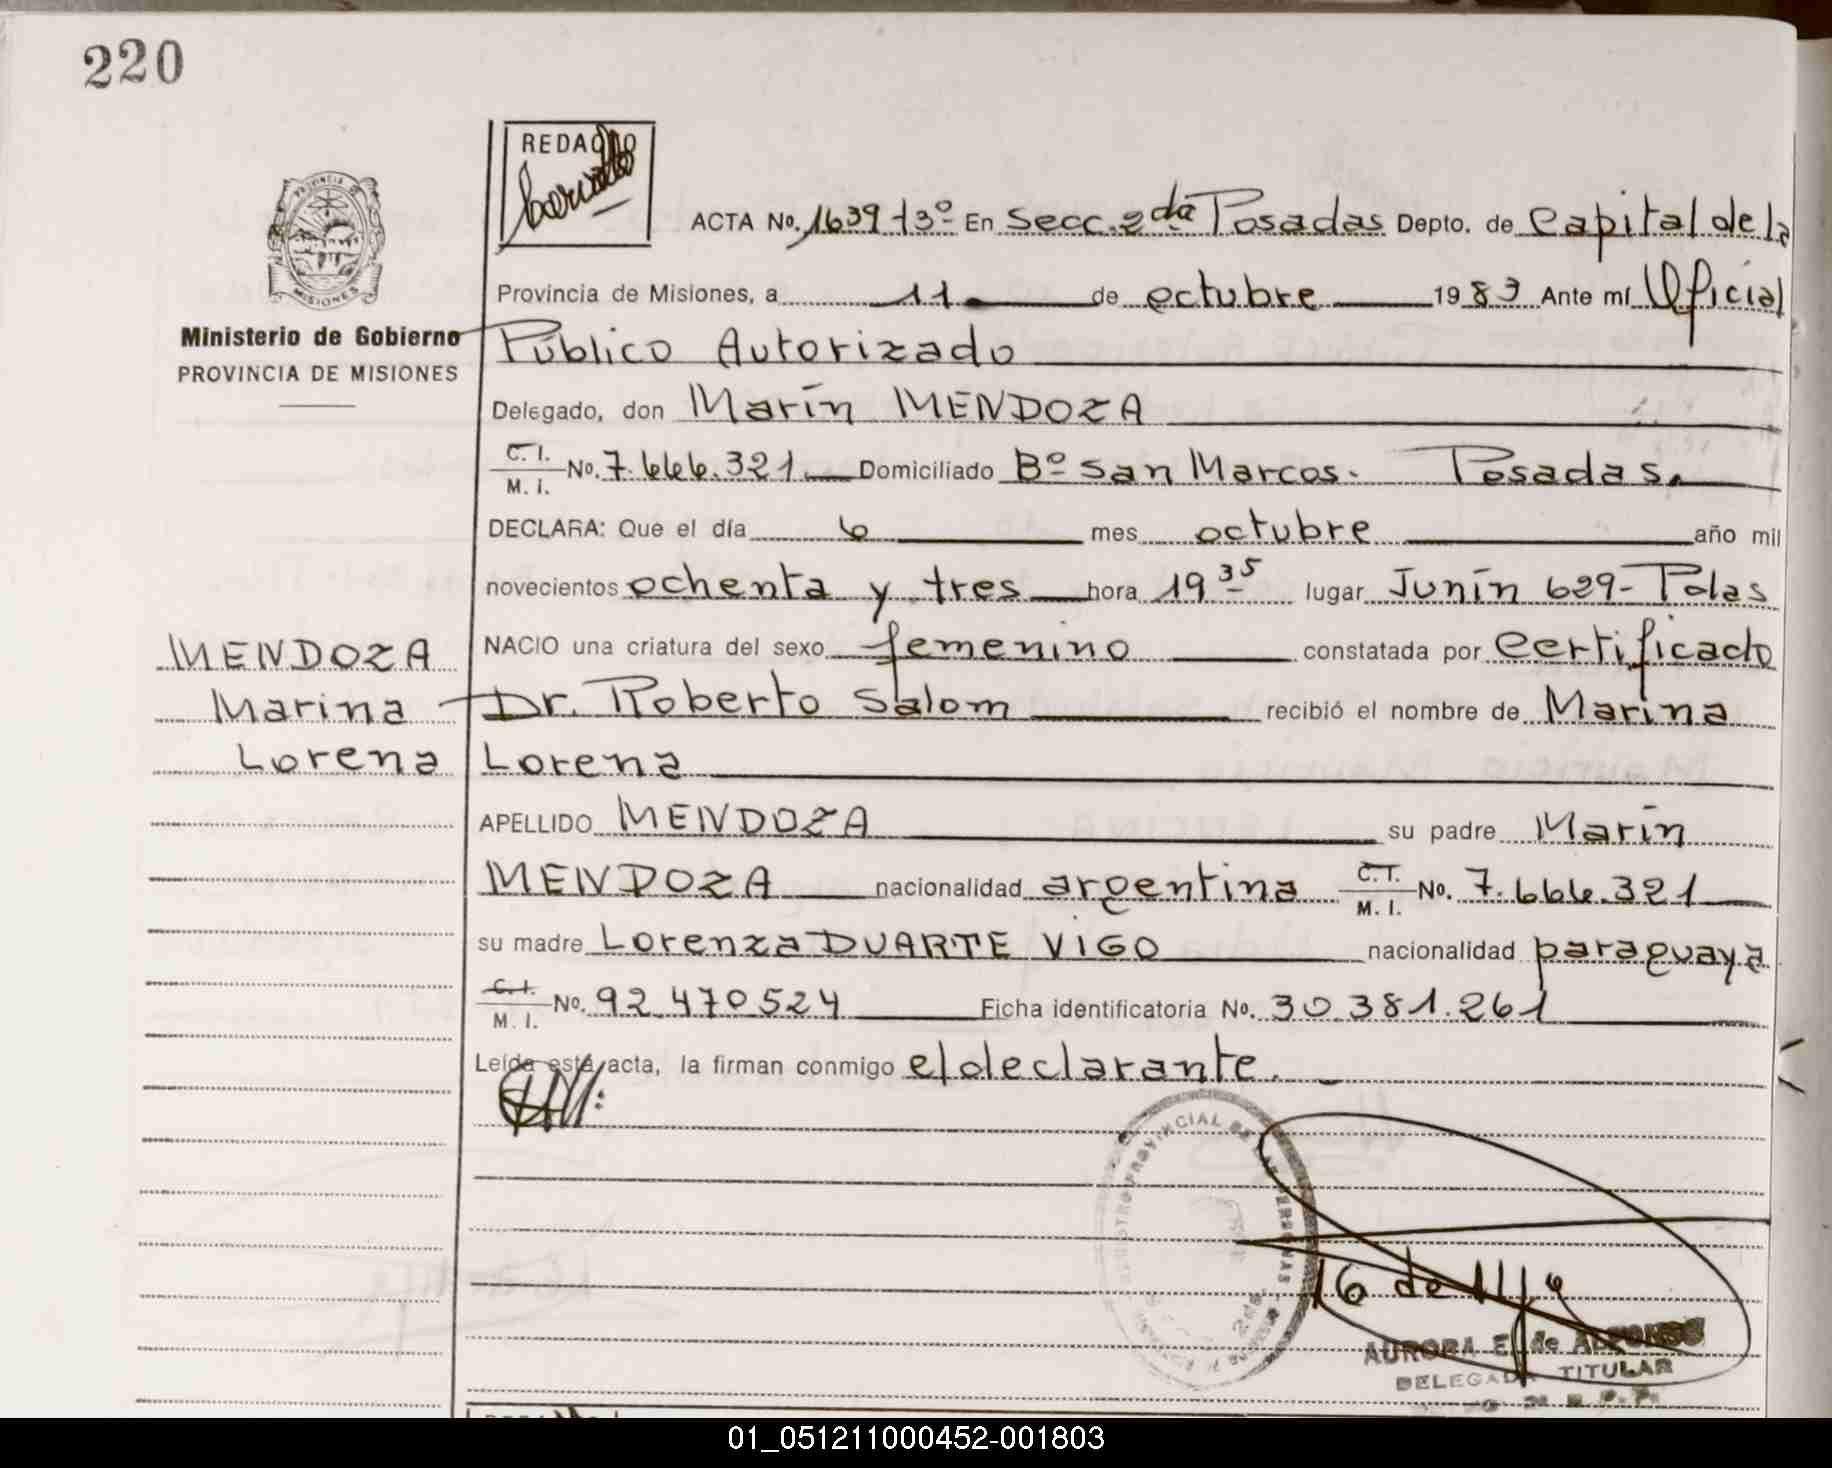 220
REDACTO
PROVINCIA DE
MISIONES
ACTA No. 1639 t3º En Secc. 2da Posadas Depto. de Capital de la
Provincia de Misiones, a 11 de octubre 1983 Ante mí Oficial
Ministerio de Gobierno
PROVINCIA DE MISIONES
Público Autorizado
Delegado, don Marín MENDOZA
C. I.
M. I. No. 7.666.321 Domiciliado Bº San Marcos. Posadas.
DECLARA: Que el día 6 mes octubre año mil
novecientos ochenta y tres hora 19 35 lugar Junín 629- Pdas
NACIO una criatura del sexo femenino constatada por Certificado
MENDOZA
Marina
Lorena
Dr. Roberto Salom recibió el nombre de Marina
Lorena
APELLIDO MENDOZA su padre Marín
MENDOZA nacionalidad argentina C.I. M. I. No. 7.666.321
su madre Lorenza DUARTE VIGO nacionalidad paraguaya
C.I. M. I. No. 92.470524 Ficha identificatoria No. 30.381.261
Leída esta acta, la firman conmigo el declarante.
PROVINCIAL DE LAS PERSONAS
AURORA E. de ALFONSO
DELEGADA TITULAR
01_051211000452-001803